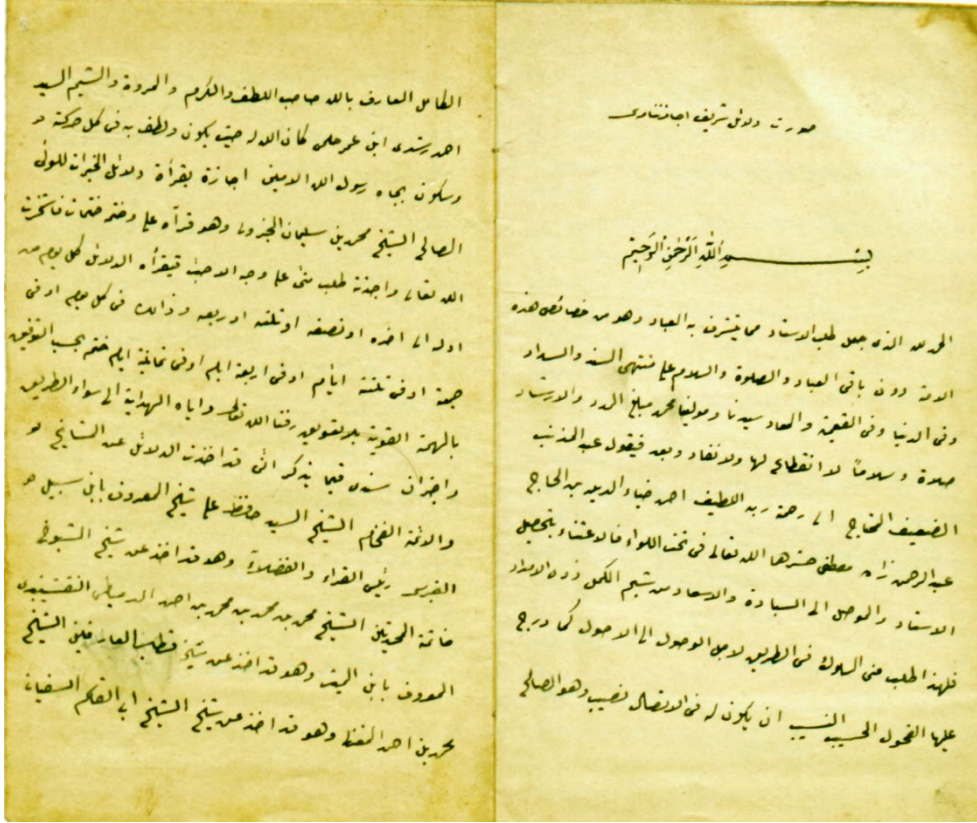 صورت دلائل شريف اجازتنامه‌سى
بِسْمِ اللّٰهِ الرَّحْمٰنِ الرَّحِيمِ
الحمد لله الذى جعل طلب الاسناد مما يتشرف به العباد وهو من خصائص هذه
الامة دون باقى العباد والصلوة والسلام على منتهى السند والسداد
وفى الدنيا وفى العقبى والمعاد سيدنا ومولينا محمد مبلغ المدد والارشاد
صلاة وسلاماً لا انقطاع لها ولا نفاد وبعد فيقول عبد المذنب
الضعيف المحتاج الى رحمة ربه اللطيف احمد ضياء الدين بن الحاج
عبد الرحمن مصطفى حشرهما الله تعالى فى تحت اللواء فالاعتناء بتحصيل
الاسناد والموصل الى السيادة والاسعاد من شيم الكمل ذوى الامداد
فلهذا طلب منى السلوك فى الطريق لاجل الوصول الى الاصول كما درج
عليها الفحول الحسيب النسيب ان يكون له فى الاتصال نصيب وهو الصالح
الكامل العارف بالله صاحب اللطف والكرم والمروة والشيم السيد
احمد رشدى ابن عمر حلمى كان الله له حيث يكون ولطف به فى كل حركة
وسكون بجاه رسول الله الامين اجازة بقراءة دلائل الخيرات للولى
الصالح الشيخ محمد بن سليمان الجزولى وهو قرأه على وختم ختمات فاستخرت
الله تعالى واجزته طلب منى على وجه الاحب فيقرأه الدلائل كل يوم من
اوله الى اخره او نصفه او ثلثه او ربعه وذالك فى كل يوم او فى
جمعة او فى ثلثة ايام او فى اربعة ايام او فى ثمانية ايام ختم بحسب التوفيق
بالهمة القوية بلا تعويق رزقنا الله تعالى واياه الهداية الى سواء الطريق
واخبران سندى فيما يذكر انى قد اخذت الدلائل عن المشايخ
والائمة الفخام الشيخ السيد حافظ على شيخ المعروف بابن سبيل
رئيس القراء والفضلاء وهو قد اخذ عن شيخ الشيوخ
خاتمة المحدثين الشيخ محمد بن محمد بن محمد بن احمد الدمياطى النقشبندى
المعروف بابن الميت وهو قد اخذ عن شيخ قطب العارفين الشيخ
محمد بن احمد وهو قد اخذ عن شيخ الشيخ ابى القاسم السفيانى